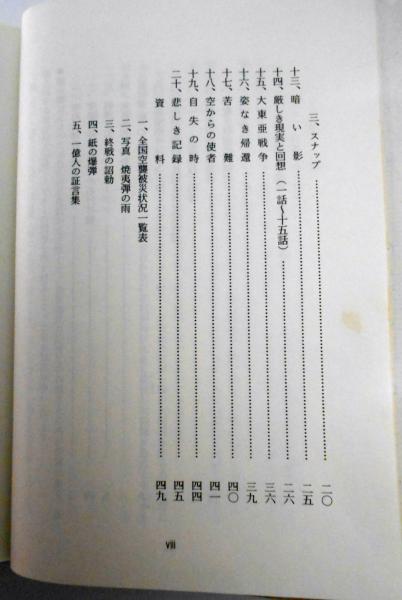 三、スナップ……………………二〇
十三、暗い影……………………二五
十四、厳しき現実と回想（一話〜十五話）……………………二六
十五、大東亜戦争……………………三六
十六、姿なき帰還……………………三九
十七、苦難……………………四〇
十八、空からの使者……………………四一
十九、自失の時……………………四四
二十、悲しき記録……………………四五
資料……………………四九
一、全国空襲被災状況一覧表
二、写真 焼夷弾の雨
三、終戦の詔勅
四、紙の爆弾
五、一億人の証言集
viii